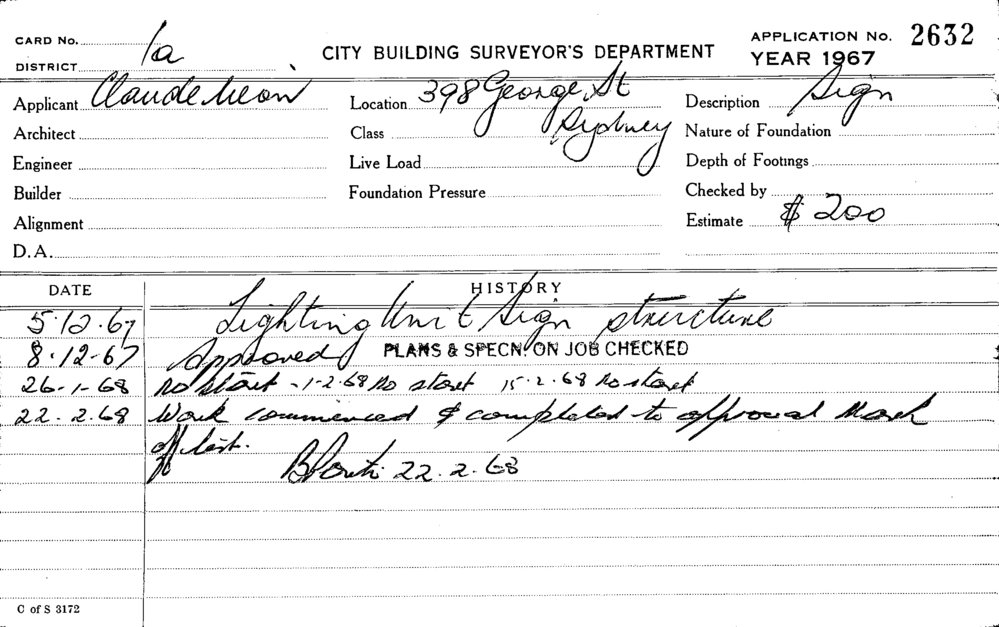 CARD No.
DISTRICT 1a
CITY BUILDING SURVEYOR'S DEPARTMENT
APPLICATION No. 2632
YEAR 1967
Applicant Claude Neon
Location 398 George St
Sydney
Description Sign
Architect
Class
Nature of Foundation
Engineer
Live Load
Depth of Footings
Builder
Foundation Pressure
Checked by
Alignment
Estimate $ 200
D.A.
DATE HISTORY
5.12.67 Lighting Unit & Sign structure
8.12-67 Approved PLANS & SPECN. ON JOB CHECKED
26-1-68 No start -1-2.68 No start 15.2.68 No start
22.2.68 Work commenced & completed to approval Mark
off list.
22.2.68
C of S 3172